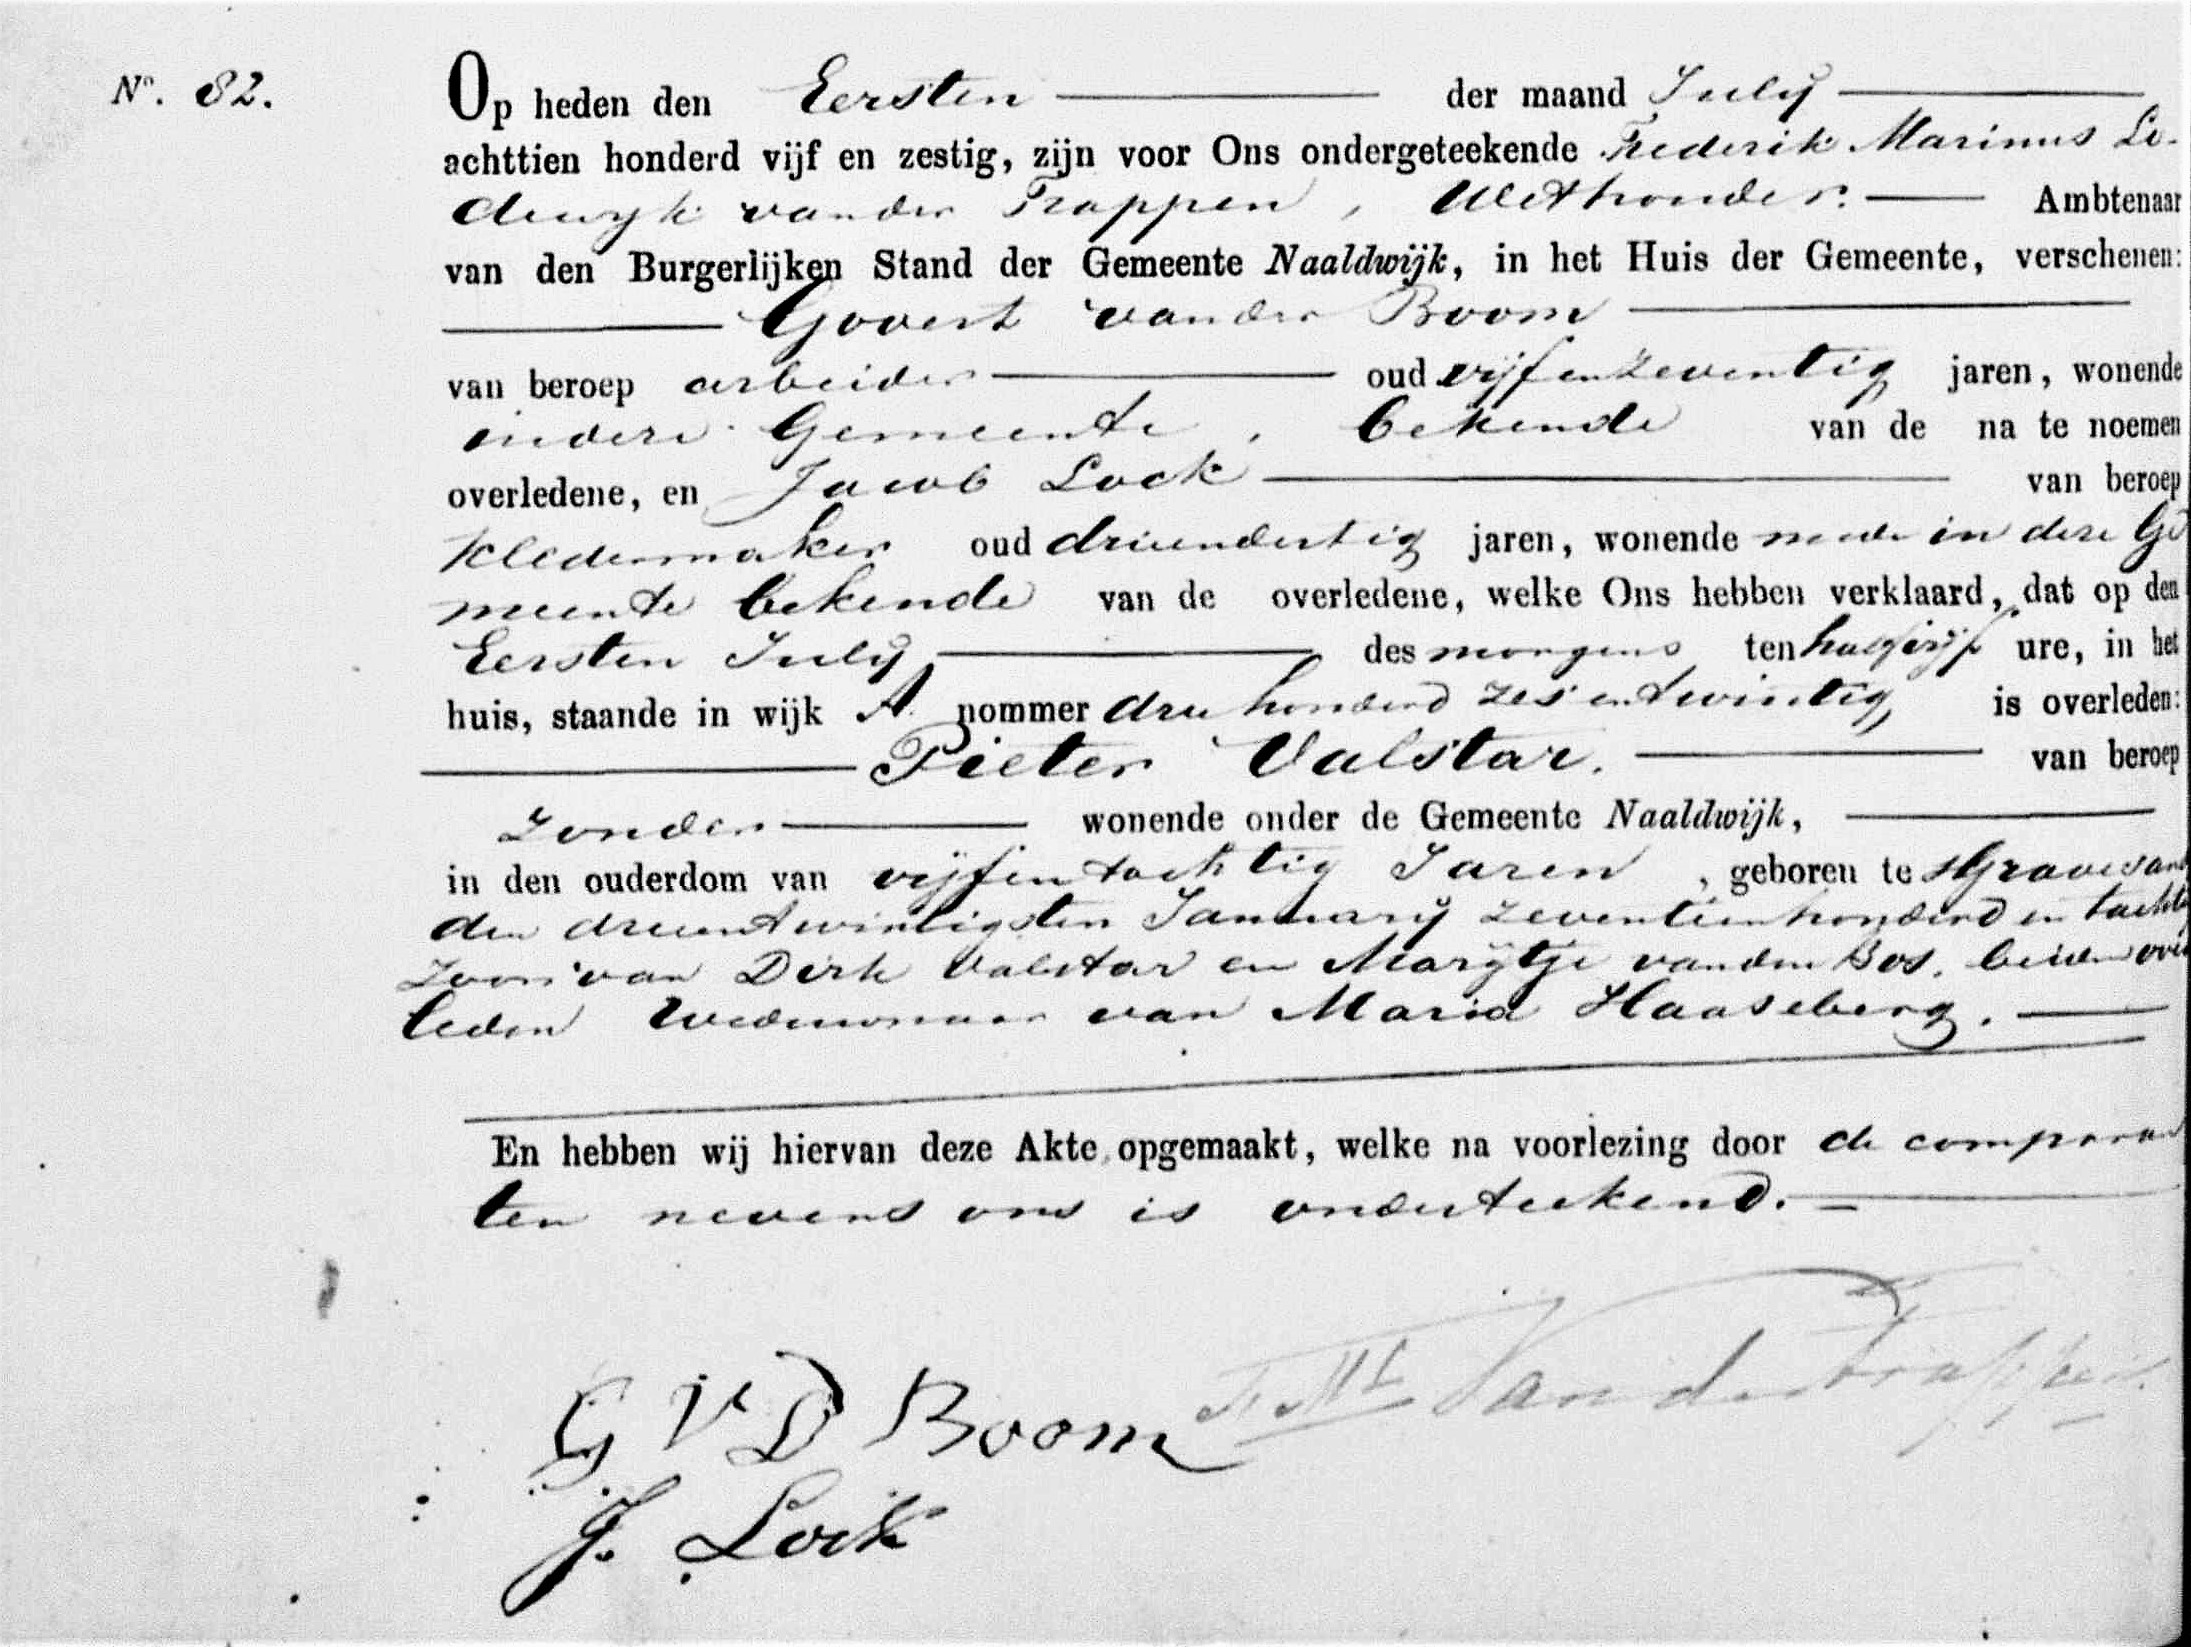 No. 82.
Op heden den Eersten der maand July
achttien honderd vijf en zestig, zijn voor Ons ondergeteekende Frederik Marinus Lo-
dewyk van der Trappen, Wethouder. Ambtenaar
van den Burgerlijken Stand der Gemeente Naaldwijk, in het Huis der Gemeente, verschenen:
Govert van der Boom
van beroep arbeider oud vijf en zeventig jaren, wonende
in deze Gemeente, bekende van de na te noemen
overledene, en Jacob Lock van beroep
kledermaker oud drieendertig jaren, wonende mede in deze Ge
meente bekende van de overledene, welke Ons hebben verklaard, dat op den
Eersten July des morgens ten half vijf ure, in het
huis, staande in wijk A. nommer drie honderd zes en twintig is overleden:
Pieter Valstar. van beroep
zonder wonende onder de Gemeente Naaldwijk,
in den ouderdom van vijf en tachtig Jaren, geboren te sGravesand
den drieentwintigsten January zeventienhonderd en tacht
zoon van Dirk Valstar en Marijtje van den Bos. beiden over
leden Weduwnaar van Maria Haaseberg.
En hebben wij hiervan deze Akte opgemaakt, welke na voorlezing door de comparan
ten nevens ons is onderteekend.
G V D Boom F. M. L. Van der Trappen.
J. Lock